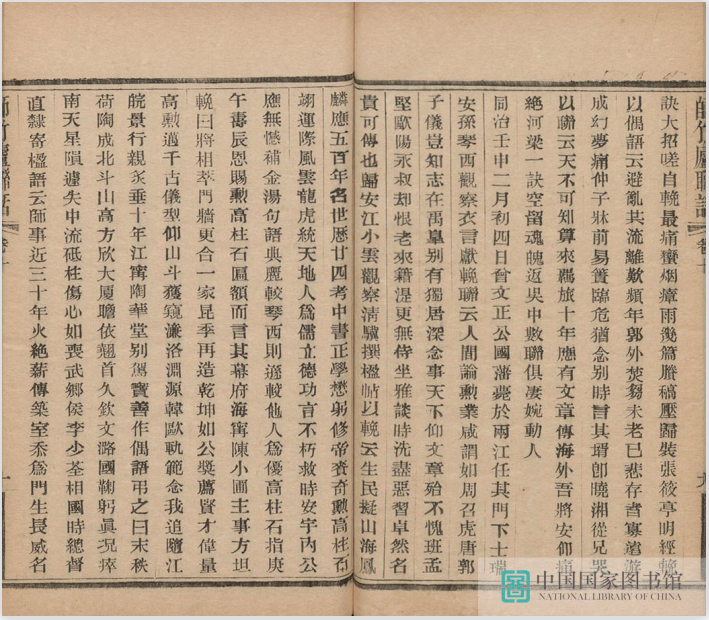 師竹廬聯話
卷十
九
訣大招嗟自輓最痛蠻烟瘴雨幾篇賸稿壓歸裝張筱亭明經輓
以偶語云避亂其流離歎頻年郭外焚芻未老已悲存者寡遠游
成幻夢痛仲子牀前易簀臨危猶念别時言其壻郎曉湘從兄哭
以聯云天不可知算來羈旅十年應有文章傳海外吾將安仰痛
絶河梁一訣空留魂魄返吳中數聯俱淒婉動人
同治壬申二月初四日曾文正公國藩薨於兩江任其門下士瑞
安孫琴西觀察衣言獻輓聯云人間論勲業咸謂如周召虎唐郭
子儀豈知志在禹臯别有獨居深念事天下仰文章殆不愧班孟
堅歐陽永叔却恨老來籍湜更無侍坐雅談時洗盡惡習卓然名
貴可傳也歸安江小雲觀察清驥撰楹帖以輓云生民擬山海鳳
麟應五百年名世歷廿四考中書正學懋躬修帝賚奇勲高柱石
翊運際風雲龍虎統天地人爲儒立德功言不朽救時安宇內公
應無憾補金湯句語典麗較琴西則遜較他人爲優高柱石指庚
午壽辰恩賜勲高柱石匾額而言其幕府海甯陳小圃主事方坦
輓曰將相萃門牆更合一家昆季再造乾坤如公奬薦賢才偉量
高勲邁千古儀型仰山斗獲窺濂洛淵源韓歐軌範念我追隨江
皖景行親炙垂十年江甯陶華堂别駕寶善作偶語弔之曰末秩
荷陶成北斗山高方欣大厦瞻依翹首久欽文潞國鞠躬眞况瘁
南天星隕遽失中流砥柱傷心如喪武鄉侯李少荃相國時總督
直隸寄楹語云師事近三十年火絶薪傳築室忝爲門生長威名
師竹廬聯話
卷十
中国国家图书馆
NATIONAL LIBRARY OF CHINA